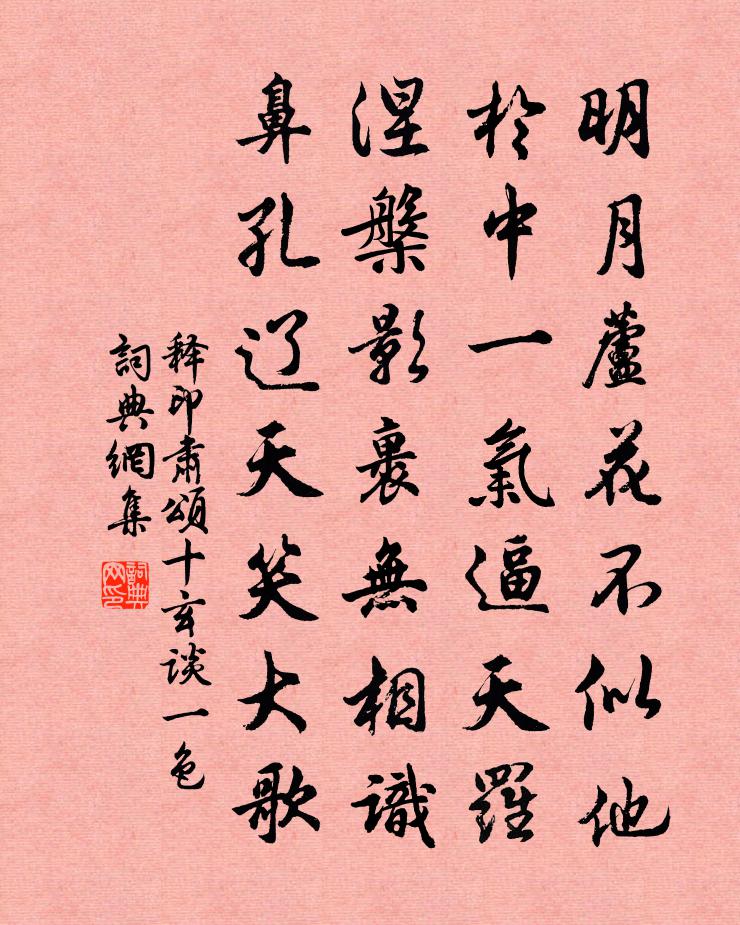 明月蘆花不似他
於中一氣逼天羅
涅槃影裹無相識
鼻孔辽天笑大歌
释印肅頌十玄谈一色
詞典網集
詞典网印